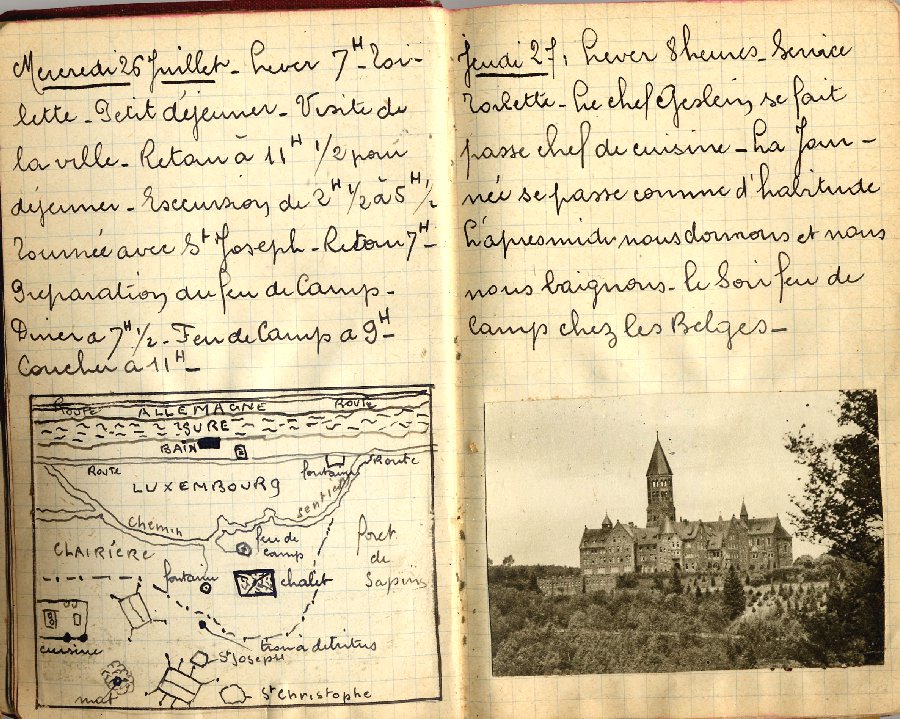 Mercredi 26 Juillet - Lever 7H - Toi-
lette - Petit déjeuner - Visite de
la ville - Retour à 11H 1/2 pour
déjeuner - Excursion, de 2H 1/2 à 5H 1/2
Tournée avec St Joseph - Retour 7H -
Preparation, du feu de Camp -
Diner a 7H 1/2 - Feu de Camp a 9H -
Coucher à 11H -
ROUTE ALLEMAGNE ROUTE
SURE
BAIN
Route fontaine Route
LUXEMBOURG
sentier
Chemin
CLAIRIÈRE feu de camp foret de Sapins
fontaine chalet
cuisine trou à détritus
St Joseph
mat St Christophe
Jeudi 27, Lever 8 heures - Service
Toilette - Le chef Geslein, se fait
passe chef de cuisine - La Jour -
née se passe comme d'habitude
L'apres midi nous dormons et nous
nous baignons - le Soir feu de
Camp chez les Belges -